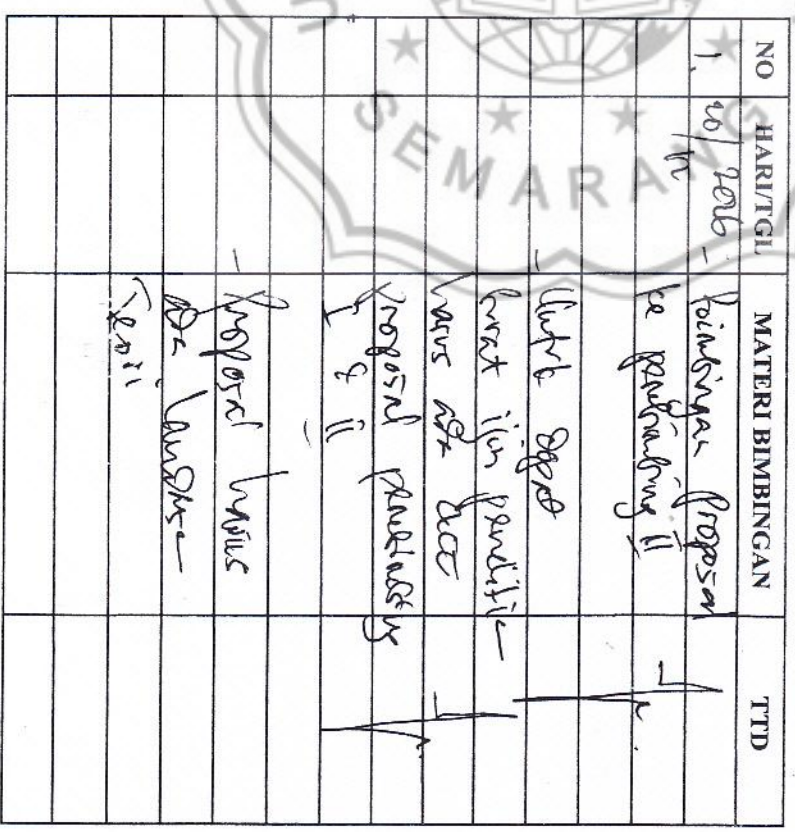 NO HARI/TGL MATERI BIMBINGAN TTD
1. 20/2016 - Bimbingan Proposal
12
ke pembimbing II
- Untuk dapat
surat ijin penelitia
harus ada acc
Proposal pembimbing
I & II
- Proposal harus
ada landasa
Teori
SEMARANG